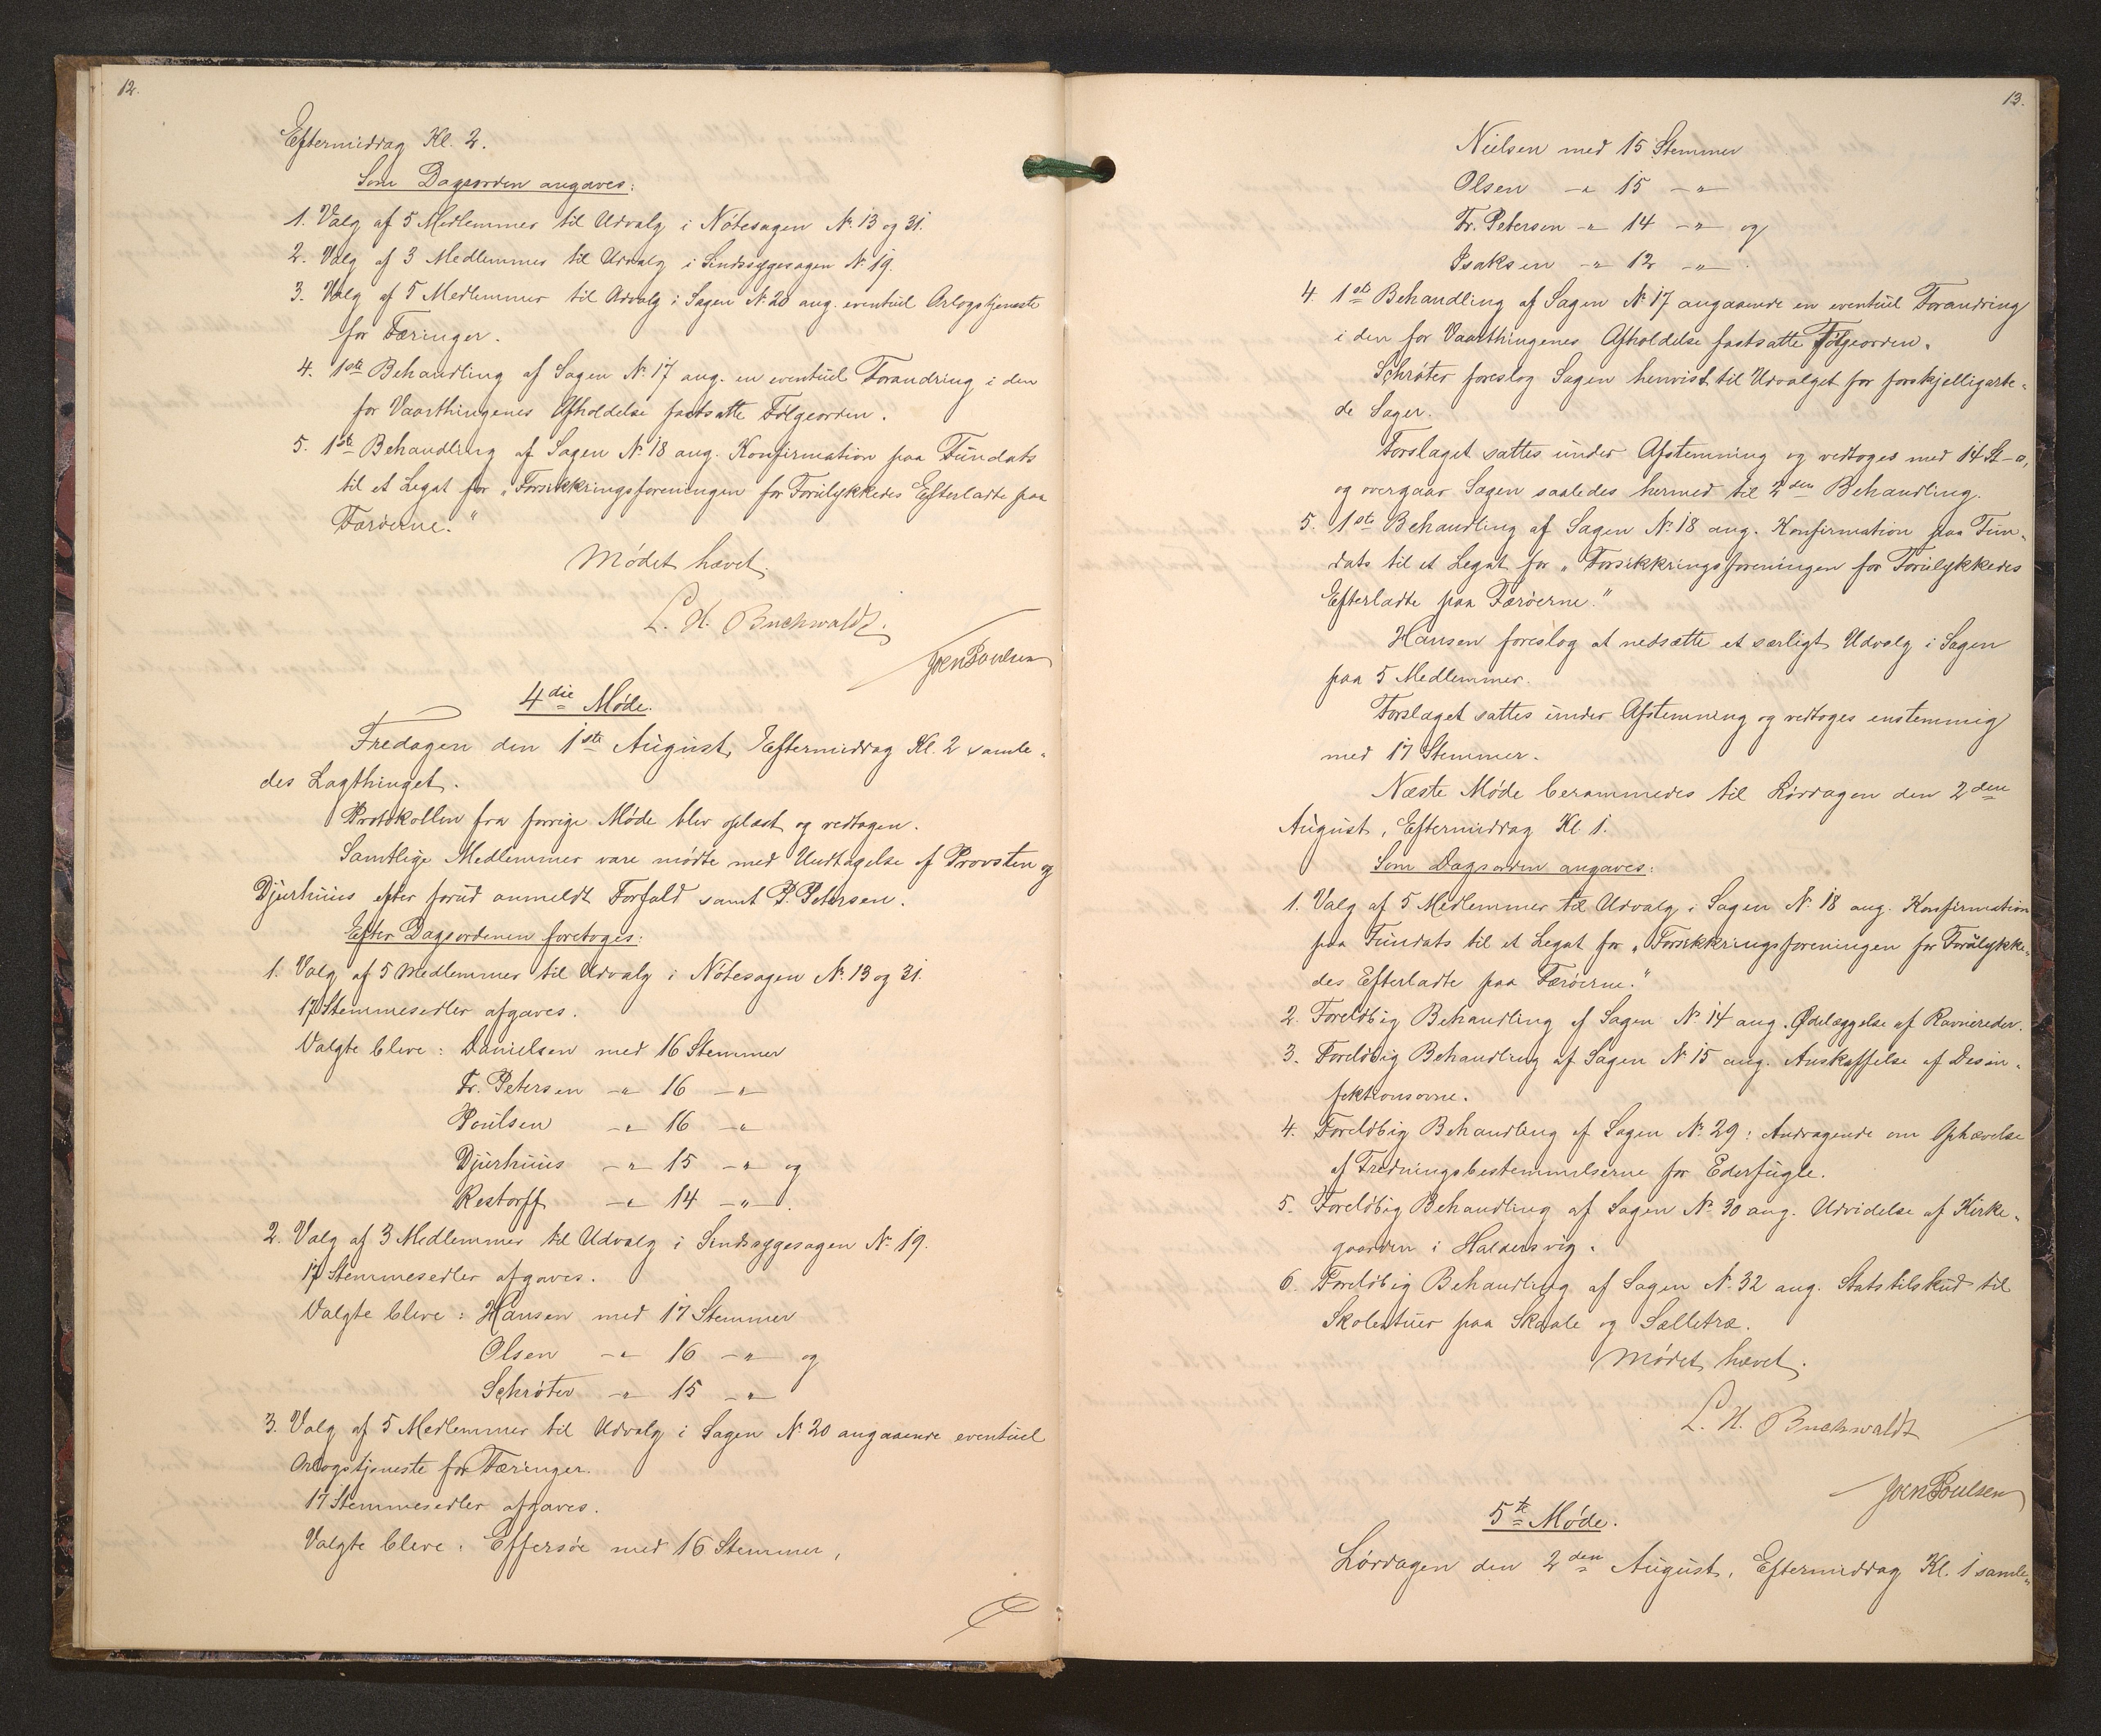 12.
Eftermiddag Kl. 2.
Som Dagsorden angaves:
1. Valg af 5 Medlemmer til Udvalg i Nótesagen No. 13 og 31.
2. Valg af 3 Medlemmer til Udvalg i Sindssygesagen No. 19.
3. Valg af 5 Medlemmer til Udvalg i Sagen No. 20 ang. eventuel Orlogstjeneste
for Færinger.
4. 1ste Behandling af Sagen No. 17 ang. en eventuel Forandring i den
for Vaarthingenes Afholdelse fastsatte Følgeorden.
5. 1ste Behandling af Sagen No. 18 ang. Konfirmation paa Fundats
til et Legat for „Forsikkringsforeningen for Forulykkedes Efterladte paa
Færøerne."
Mødet hævet.
L. H. Buchwaldt.
Joen Poulsen
4die Møde.
Fredagen den 1ste August, Eftermiddag Kl. 2 samle-
des Lagthinget.
Protokollen fra forrige Møde blev oplæst og vedtagen.
Samtlige Medlemmer vare mødte med Undtagelse af Provsten og
Djurhuus efter forud anmeldt Forfald samt P. Petersen.
Efter Dagsordenen foretoges:
1. Valg af 5 Medlemmer til Udvalg i Nótesagen No. 13 og 31.
17 Stemmesedler afgaves.
Valgte bleve: Danielsen med 16 Stemmer
Fr. Petersen -„- 16 -„-
Poulsen -„- 16 -„-
Djurhuus -„- 15 -„- og
Restorff -„- 14 -„-.
2. Valg af 3 Medlemmer til Udvalg i Sindssygesagen No. 19.
17 Stemmesedler afgaves.
Valgte bleve: Hansen med 17 Stemmer
Olsen -„- 16 -„- og
Schrøter -„- 15 -„-
3. Valg af 5 Medlemmer til Udvalg i Sagen No. 20 angaaende eventuel
Orlogstjeneste for Færinger.
17 Stemmesedler afgaves.
Valgte bleve: Effersøe med 16 Stemmer,
13.
Nielsen med 15 Stemmer
Olsen -„- 15 -„-
Fr. Petersen -„- 14 -„- og
Isaksen -„- 12 -„-.
4. 1ste Behandling af Sagen No. 17 angaaende en eventuel Forandring
i den for Vaarthingenes Afholdelse fastsatte Følgeorden.
Schrøter foreslog Sagen henvist til Udvalget for forskjelligarte-
de Sager.
Forslaget sattes under Afstemning og vedtoges med 14 St-r,
og overgaar Sagen saaledes hermed til 2den Behandling.
5. 1ste Behandling af Sagen No. 18 ang. Konfirmation paa Fun-
dats til et Legat for „Forsikkringsforeningen for Forulykkedes
Efterladte paa Færøerne."
Hansen foreslog at nedsætte et særligt Udvalg i Sagen
paa 5 Medlemmer.
Forslaget sattes under Afstemning og vedtoges enstemmig
med 17 Stemmer.
Næste Møde berammedes til Lørdagen den 2den
August, Eftermiddag Kl. 1.
Som Dagsorden angaves:
1. Valg af 5 Medlemmer til Udvalg i Sagen No. 18 ang. Konfirmation
paa Fundats til et Legat for „Forsikkringsforeningen for Forulykke-
des Efterladte paa Færøerne."
2. Foreløbig Behandling af Sagen No. 14 ang. Ødelæggelse af Ravnereder.
3. Foreløbig Behandling af Sagen No. 15 ang. Anskaffelse af Desin-
fektionsovne.
4. Foreløbig Behandling af Sagen No. 29: Andragende om Ophævelse
af Fredningsbestemmelserne for Ederfugle.
5. Foreløbig Behandling af Sagen No. 30 ang. Udvidelse af Kirke-
gaarden i Haldersvig.
6. Foreløbig Behandling af Sagen No. 32 ang. Statstilskud til
Skolestuer paa Skaale og Selletræ.
Mødet hævet.
L. H. Buchwaldt
Joen Poulsen
5te Møde.
Lørdagen den 2den August, Eftermiddag Kl. 1 samle-